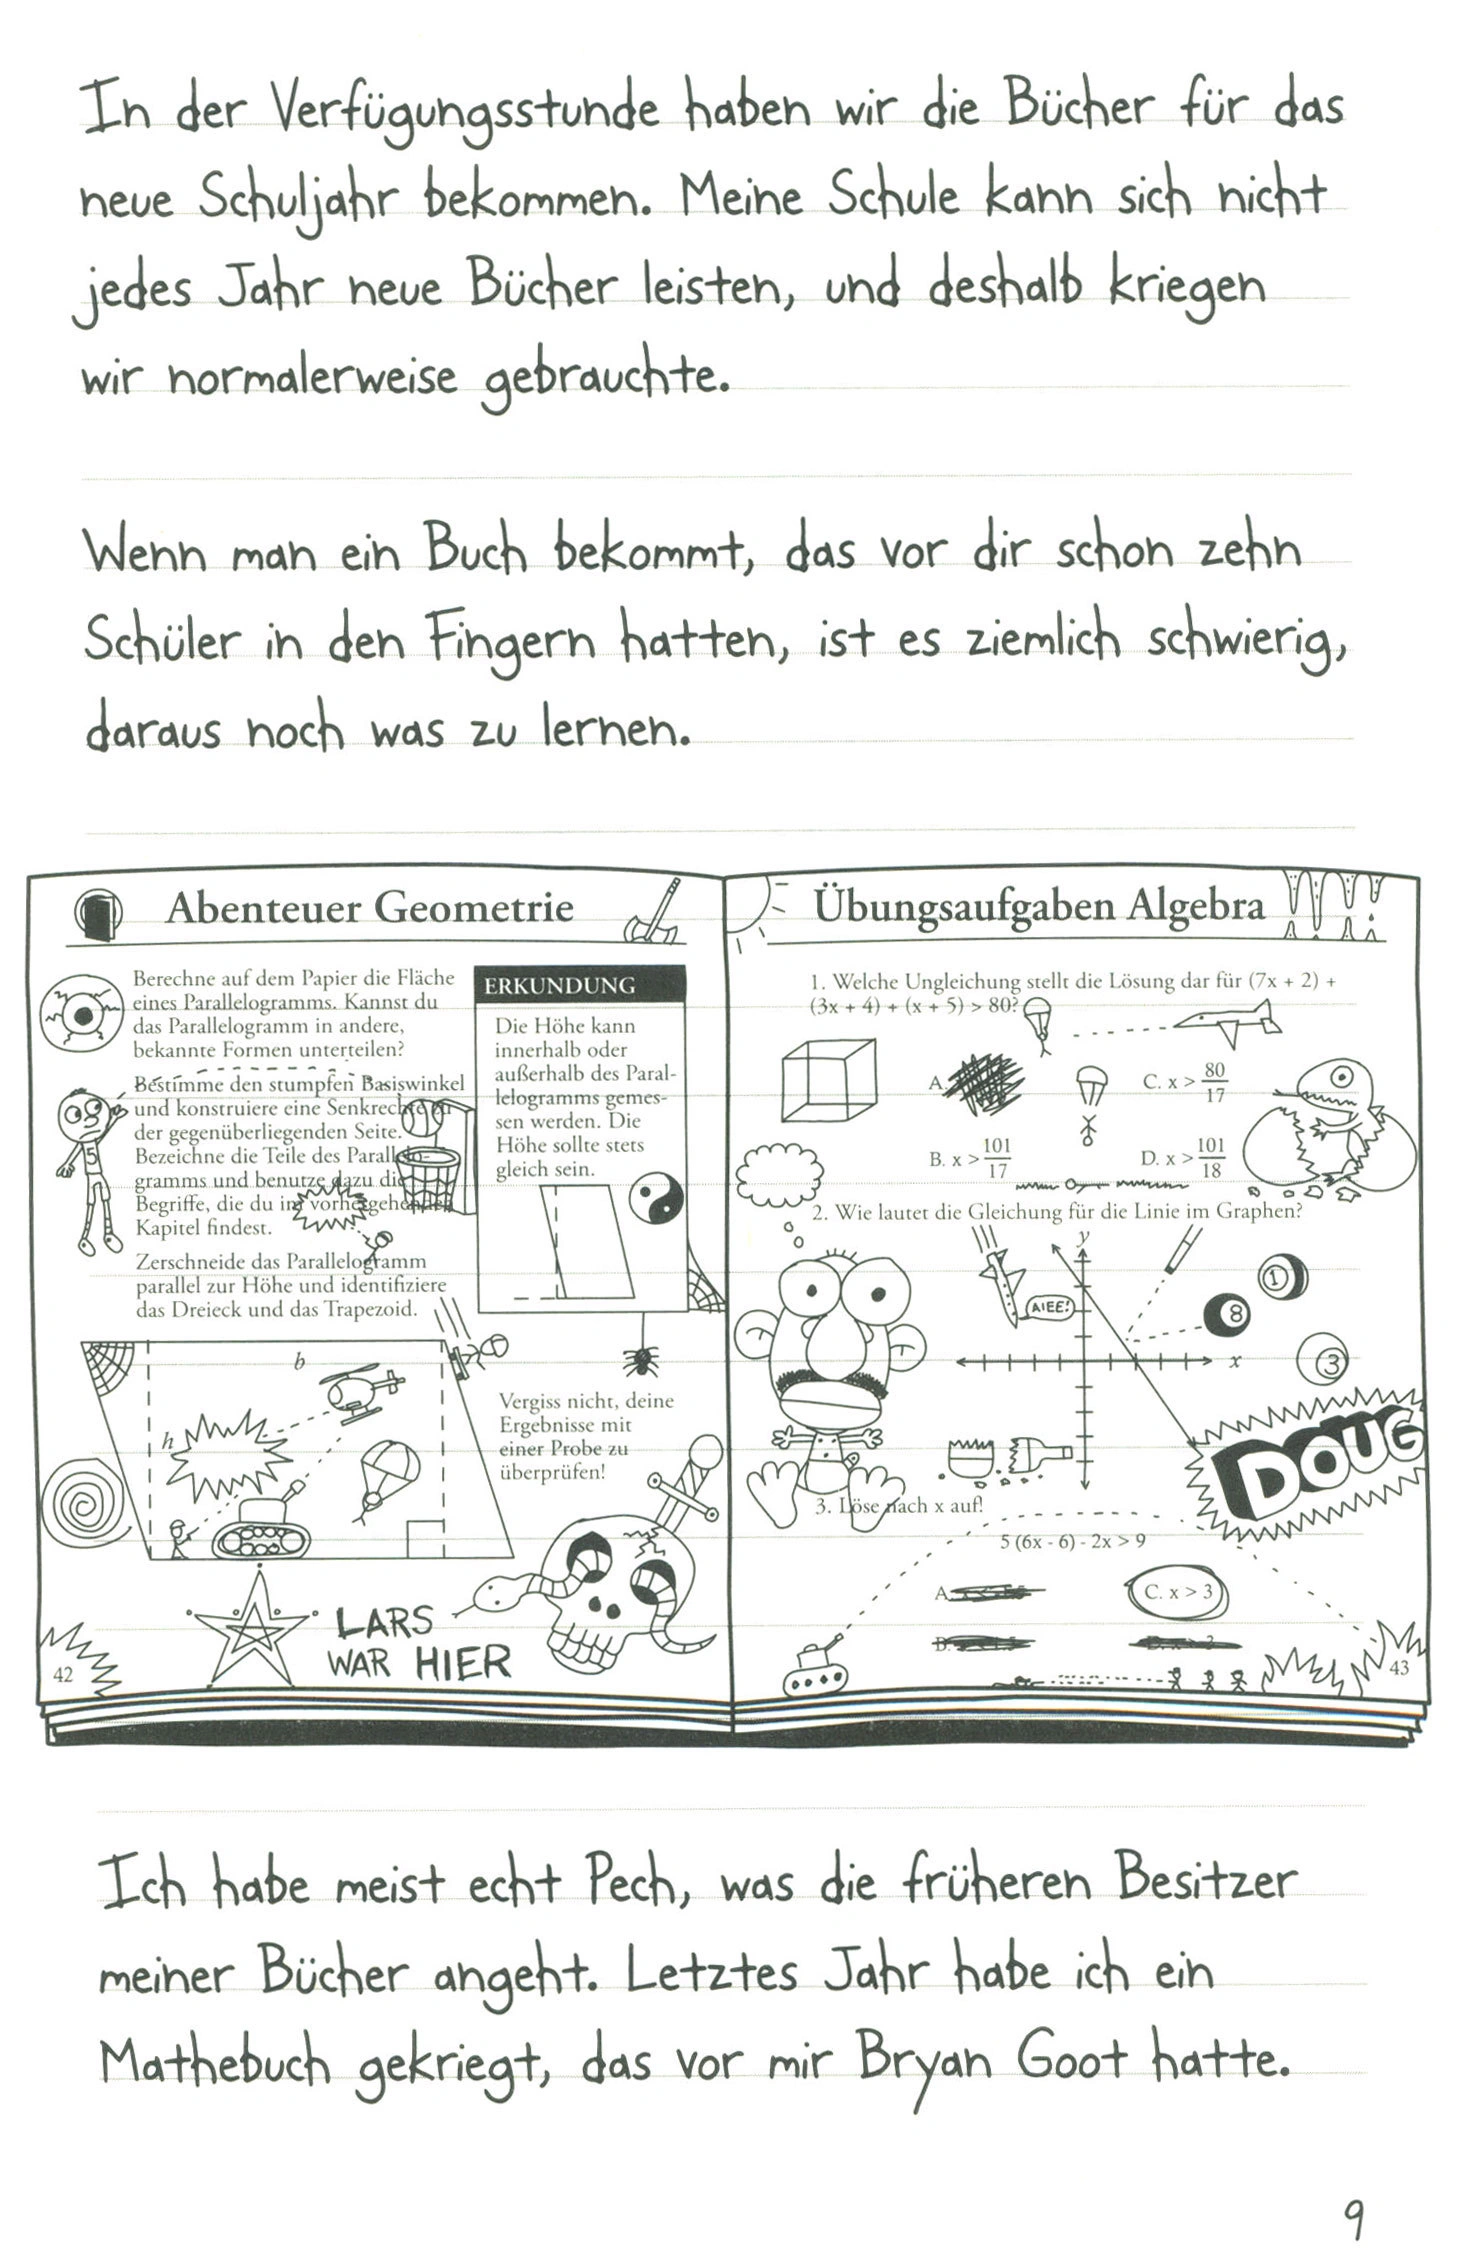 In der Verfügungsstunde haben wir die Bücher für das
neue Schuljahr bekommen. Meine Schule kann sich nicht
jedes Jahr neue Bücher leisten, und deshalb kriegen
wir normalerweise gebrauchte.
Wenn man ein Buch bekommt, das vor dir schon zehn
Schüler in den Fingern hatten, ist es ziemlich schwierig,
daraus noch was zu lernen.
Abenteuer Geometrie
Berechne auf dem Papier die Fläche
eines Parallelogramms. Kannst du
das Parallelogramm in andere,
bekannte Formen unterteilen?
Bestimme den stumpfen Basiswinkel
und konstruiere eine Senkrechte zu
der gegenüberliegenden Seite.
Bezeichne die Teile des Parallelo-
gramms und benutze dazu die
Begriffe, die du im vorhergehenden
Kapitel findest.
Zerschneide das Parallelogramm
parallel zur Höhe und identifiziere
das Dreieck und das Trapezoid.
5
b
h
ERKUNDUNG
Die Höhe kann
innerhalb oder
außerhalb des Paral-
lelogramms gemes-
sen werden. Die
Höhe sollte stets
gleich sein.
Vergiss nicht, deine
Ergebnisse mit
einer Probe zu
überprüfen!
LARS
WAR HIER
42
Übungsaufgaben Algebra
1. Welche Ungleichung stellt die Lösung dar für (7x + 2) +
(3x + 4) + (x + 5) > 80?
A.
C. x > 80/17
B. x > 101/17
D. x > 101/18
2. Wie lautet die Gleichung für die Linie im Graphen?
y
AIEE!
x
1
8
3
DOUG
3. Löse nach x auf!
5 (6x - 6) - 2x > 9
A.
C. x > 3
B.
43
Ich habe meist echt Pech, was die früheren Besitzer
meiner Bücher angeht. Letztes Jahr habe ich ein
Mathebuch gekriegt, das vor mir Bryan Goot hatte.
9